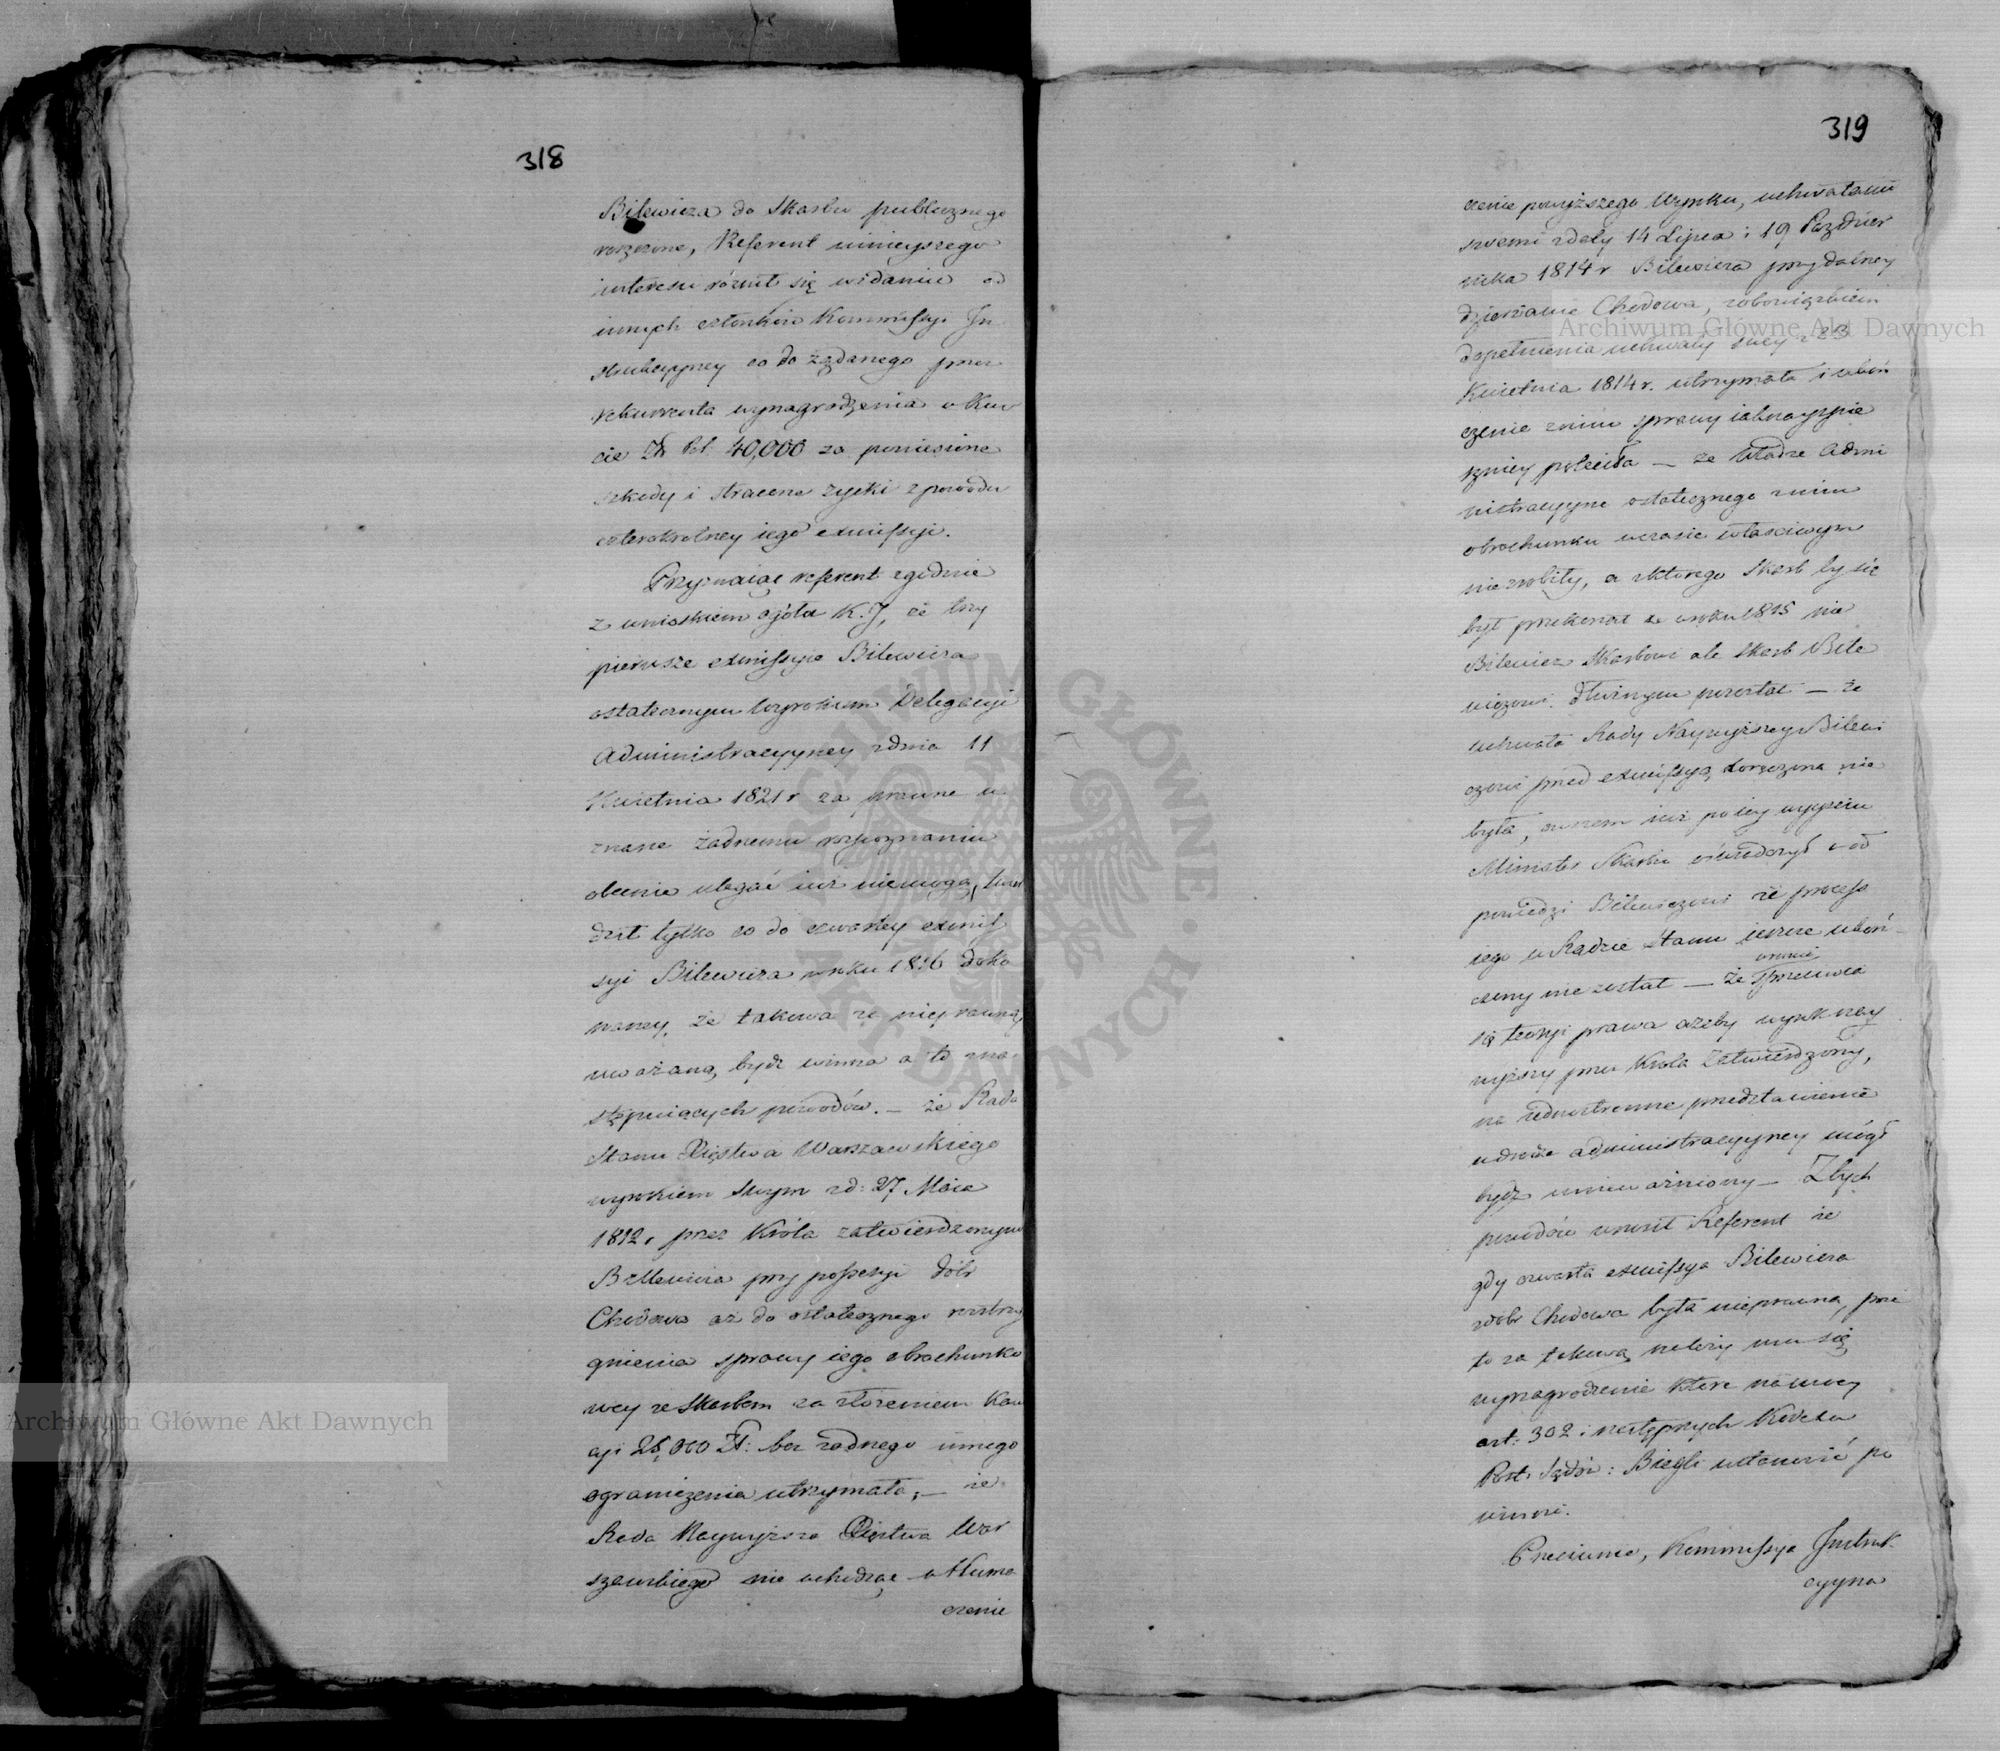 318
Bilewicza do Skarbu publicznego
rzeczone, Referent ninieyszego
interesu róznił się w zdaniu od
innych członków Kommissyi In
strukcyyney co do żądanego przez
rekurrenta wynagrodzenia w kwo
cie Zł Pol 40,000 za poniesione
szkody i stracone zyski z powodu
czterokrotney iego exmissyi.
Przyznaiąc referent zgodnie
z wnioskiem ogółu K. J, że trzy
pierwsze exmissye Bilewicza
ostatecznym wyrokiem Delegacyi
Administracyyney z dnia 11
Kwietnia 1821 r za prawne u
znane żadnemu rozpoznaniu
obecnie ulegać iuż niemogą, twier
dził tylko co do czwartey exmis
syi Bilewicza w roku 1816 doko
naney, że takowa za nieprawną
uważaną bydź winna a to z na
stępuiących powodów. — że Rada
Stanu Xięstwa Warszawskiego
wyrokiem swym z d: 27 Maia
1812 r przez Króla zatwierdzonym
Billewicza przy possessyi dóbr
Chodowa aż do ostatecznego rozstrzy
gnienia sprawy iego obrachunko
wey ze Skarbem za złożeniem kau
cyi 25,000 Zł: bez żadnego innego
ograniczenia utrzymała; — że
Rada Naywyższa Xięstwa War
szawskiego nie wchodząc w tłuma
czenie
319
czenie powyższego wyroku, uchwałami
swemi z daty 14 Lipca i 19 Pazdzier
nika 1814 r Bilewicza przy dalszey
dzierżawie Chodowa, z obowiązkiem
dopełnienia uchwały swey z 23
Kwietnia 1814 r. utrzymała i ukoń
czenie z nim sprawy iaknayspie
szniey poleciła — że Władze Admi
nistracyyne ostatecznego z nim
obrachunku w czasie właściwym
nie zrobiły, a z którego Skarb by się
był przekonał że w roku 1815 nie
Bilewicz Skarbowi ale Skarb Bile
wiczowi dłużnym pozostał — że
uchwała Rady Naywyższey Bilewi
czowi przed exmissyą doręczona nie
była, owszem iuż po iey wyysciu
Minister Skarbu oświadczył w od
powiedzi Bilewiczowi że process
iego w Radzie Stanu ieszcze ukoń
czony nie został — że sprzeciwia
się teoryi prawa ażeby wyrok nay
wyższy przez Króla zatwierdzony,
na iednostronne przedstawienie
w drodze administracyyney mógł
bydź unieważniony — Z tych
powodów wnosił Referent że
gdy czwarta exmissya Bilewicza
z dóbr Chodowa była nieprawna, prze
to za takową należy mu się
wynagrodzenie które na mocy
art: 302 i następnych Kodexu
Post. Sądów: Biegli ustanowić po
winni.
Przeciwnie, Kommissya Instruk
cyyna
Archiwum Główne Akt Dawnych
Archiwum Główne Akt Dawnych
ARCHIWUM GŁÓWNE AKT DAWNYCH